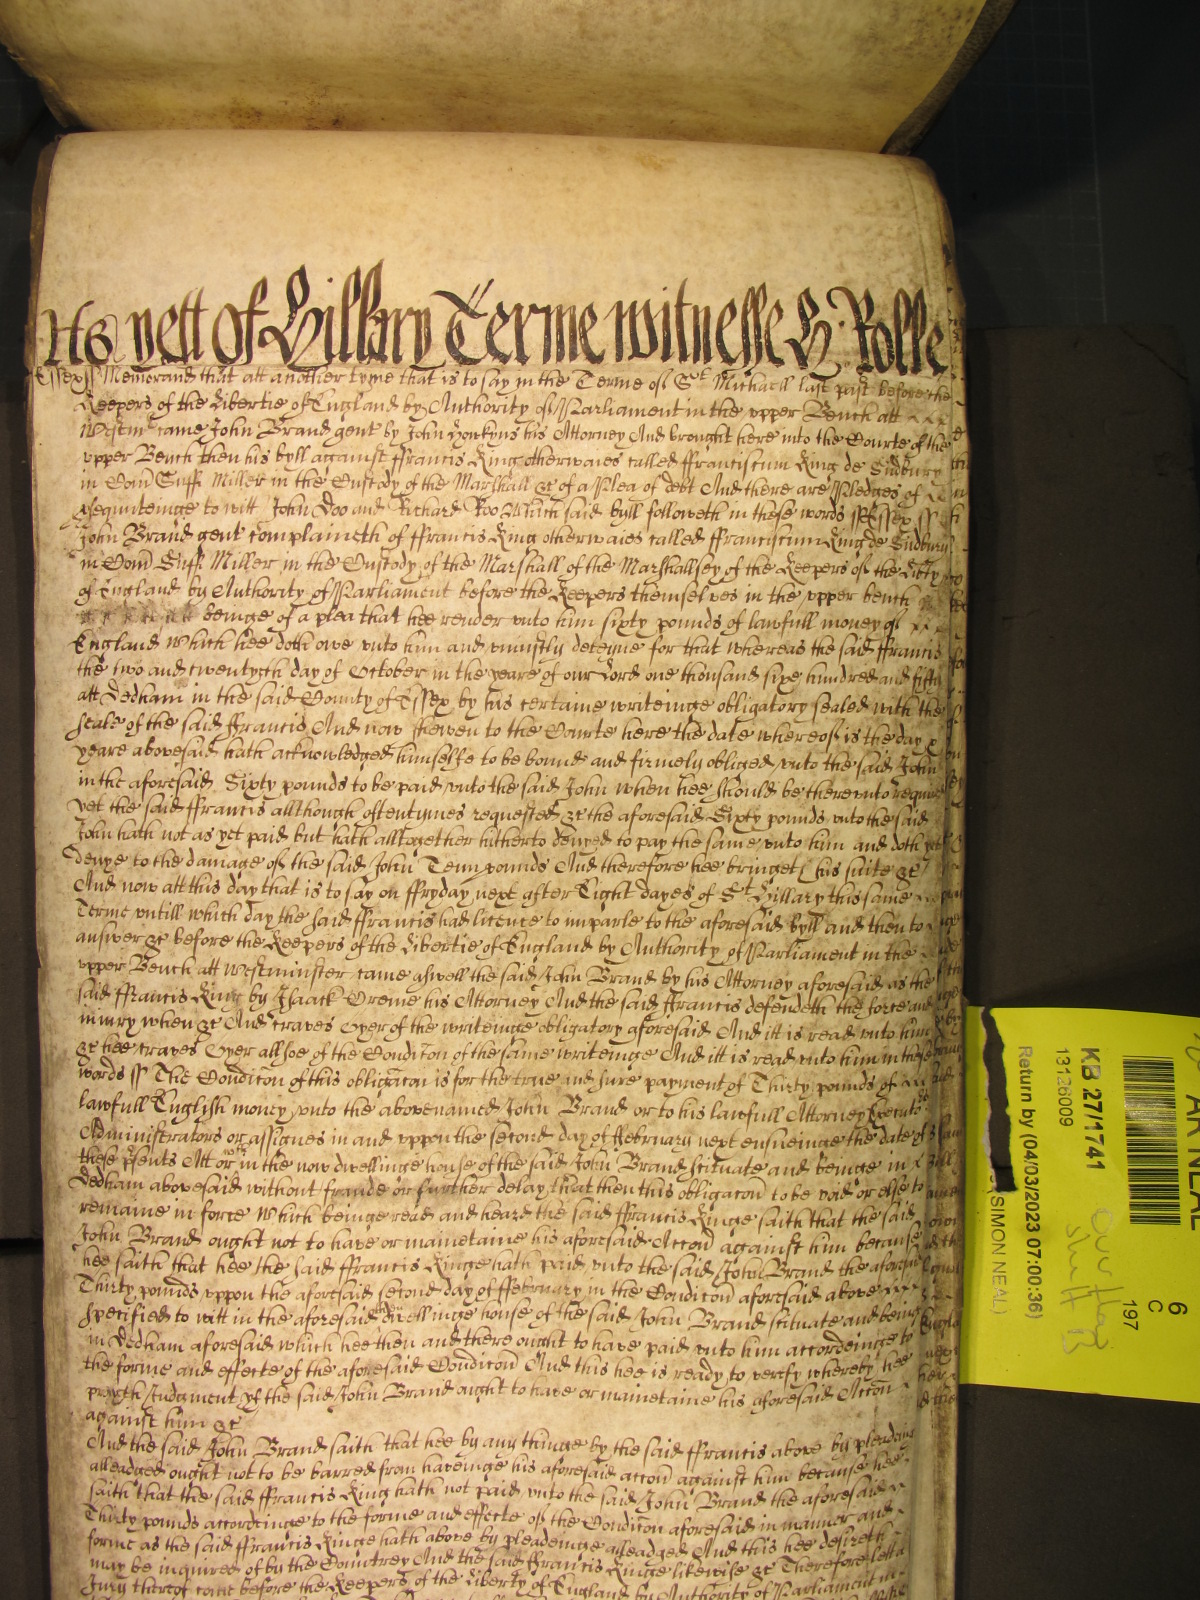 As yett of Hillary Terme witnesse H Rolle
Essex ss Memorand that att another tyme that is to say in the Terme of St Michaell last past before the
Keepers of the Libertie of England by Authority of Parliament in the upper Bench att
Westmr came John Brand gent by John Honkyns his Attorney And brought here into the Courte of the
upper Bench then his byll against ffrancis King otherwaies called ffranciscum King de Sudbury
in Com Suff Miller in the Custody of the Marshall &c of a Plea of debt And there are Pledges of
psequuteinge to witt John Doo and Richard Roo Which said byll followeth in these words ss Essex ss
John Brand gent complaineth of ffrancis King otherwaies called ffranciscum King de Sudbury
in Com Suff Miller in the Custody of the Marshall of the Marshallsey of the Keepers of the Libty
of England by Authority of Parliament before the Keepers themselves in the upper bench
beinge of a plea that hee render unto him sixty pounds of lawfull money of
England Which hee doth owe unto him and uniustly deteyne for that whereas the said ffrancis
the two and twentyth day of October in the yeare of our Lord one thousand sixe hundred and fifty
att Dedham in the said County of Essex by his certaine writeinge obligatory sealed with the
seale of the said ffrancis And now shewen to the Courte here the date whereof is the day &
yeare abovesaid hath acknowledged himselfe to be bound and firmely obliged unto the said John
in the aforesaid Sixty pounds to be paid unto the said John when hee should be thereunto required
yet the said ffrancis allthough oftentymes requested &c the aforesaid Sixty pounds unto the said
John hath not as yet paid but hath alltogether hitherto denyed to pay the same unto him and doth yet
denye to the damage of the said John Tenn pounds And therefore hee bringeth his suite &c
And now att this day that is to say on ffryday next after Eight dayes of St Hillary this same
Terme untill which day the said ffrancis had licence to imparle to the aforesaid byll and then to
answer &c before the Keepers of the Libertie of England by Authority of Parliament in the
upper Bench att Westminster came aswell the said John Brand by his Attorney aforesaid as the
said ffrancis King by Isaack Creme his Attorney And the said ffrancis defendeth the force and
iniury when &c And craves Oyer of the writeinge obligatory aforesaid And itt is read unto him
&c hee craves Oyer allsoe of the Condicon of the same writeinge And itt is read unto him in these
words ss The Condicon of this obligacon is for the true and sure payment of Thirty pounds of
lawfull English money unto the abovenamed John Brand or to his lawfull Attorney Executors
Administrators or assignes in and uppon the second day of ffebruary next ensueinge the date of
these psents Att or in the now dwellinge house of the said John Brand scituate and beinge in
Dedham abovesaid without fraude or further delay that then this obligacon to be void or else to
remaine in force Which beinge read and heard the said ffrancis Kinge saith that the said
John Brand ought not to have or mainetaine his aforesaid Accon against him because
hee saith that hee the said ffrancis Kinge hath paid unto the said John Brand the aforesaid
Thirty pounds uppon the aforesaid second day of ffebruary in the Condicon aforesaid above
specified to witt in the aforesaid dwellinge house of the said John Brand scituate and being
in Dedham aforesaid which hee then and there ought to have paid unto him accordeinge to
the forme and effecte of the aforesaid Condicon And this hee is ready to verify whereby hee
prayeth Iudgment yf the said John Brand ought to have or mainetaine his aforesaid Accon
against him &c
And the said John Brand saith that hee by any thinge by the said ffrancis above by pleading
alleadged ought not to be barred from haveinge his aforesaid accon against him because hee
saith that the said ffrancis King hath not paid unto the said John Brand the aforesaid
Thirty pounds accordeinge to the forme and effecte of the Condicon aforesaid in manner and
forme as the said ffrancis Kinge hath above by pleadeinge alleadged And this hee desireth
may be inquired of by the Countrey And the said ffrancis Kinge likewise &c Therefore lett a
Iury thereof come before the Keepers of the Liberty of England by Authority of Parliament in
KB 27/1741
13126009
Return by (04/03/2023 07:00:36)
(SIMON NEAL)
6
C
197